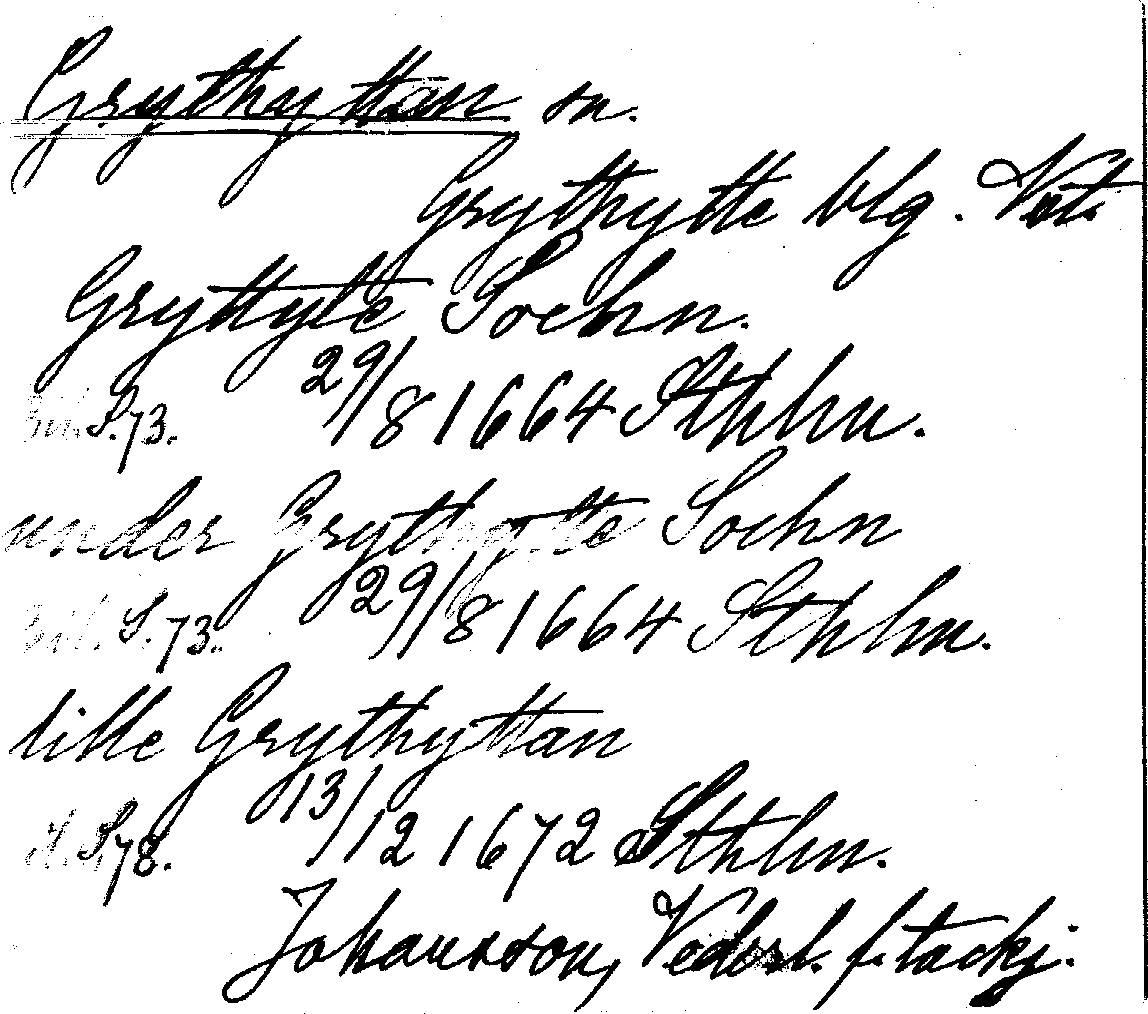 Grythyttan sn.
Grythytte blg. Vstl.
Gryttyte Sochn.
Bil. S. 73. 29/8 1664 Sthlm.
under Grythytte Sochn
Bil. S. 73. 29/8 1664 Sthlm.
lille Grythyttan
S. 78. 13/12 1672 Sthlm.
Johansson, Vedersl. f. tackj.